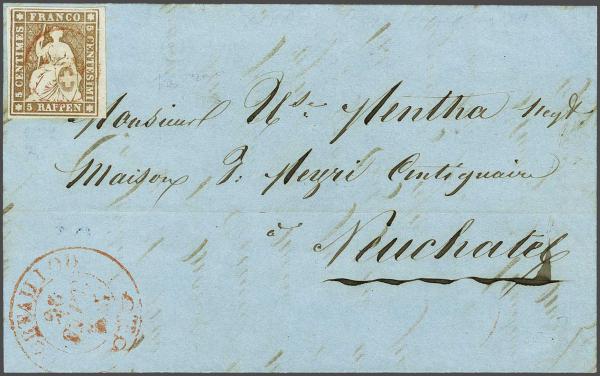 FRANCO
5 CENTIMES
5 CENTESIMI
5 RAPPEN
Monsieur Hse. Mentha Negt
Maison F: Meyri Antiquaire
à
Neuchatel
CORTAILLOD